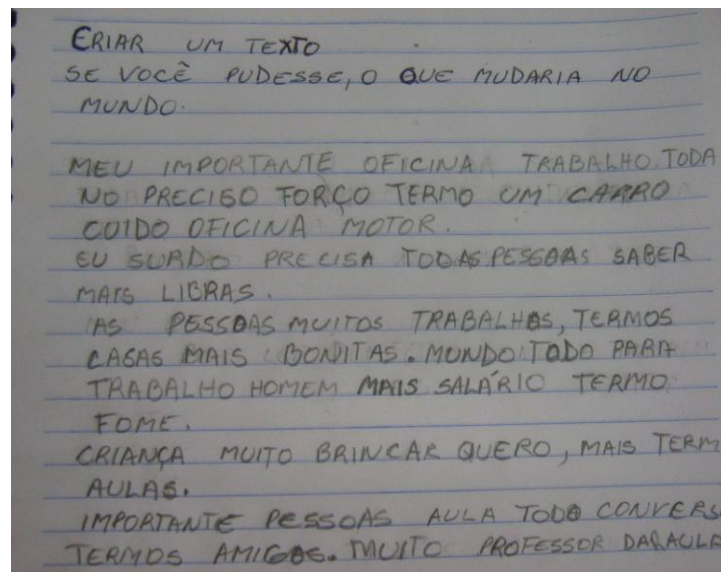 CRIAR UM TEXTO
SE VOCÊ PUDESSE, O QUE MUDARIA NO
MUNDO.
MEU IMPORTANTE OFICINA TRABALHO TODA
NO PRECISO FORÇO TERMO UM CARRO
CUIDO OFICINA MOTOR.
EU SURDO PRECISA TODAS PESSOAS SABER
MAIS LIBRAS.
AS PESSOAS MUITOS TRABALHOS, TERMOS
CASAS MAIS BONITAS. MUNDO TODO PARA
TRABALHO HOMEM MAIS SALÁRIO TERMO
FOME.
CRIANÇA MUITO BRINCAR QUERO, MAIS TERM
AULAS.
IMPORTANTE PESSOAS AULA TODO CONVERS
TERMOS AMIGOS. MUITO PROFESSOR DAR AULA